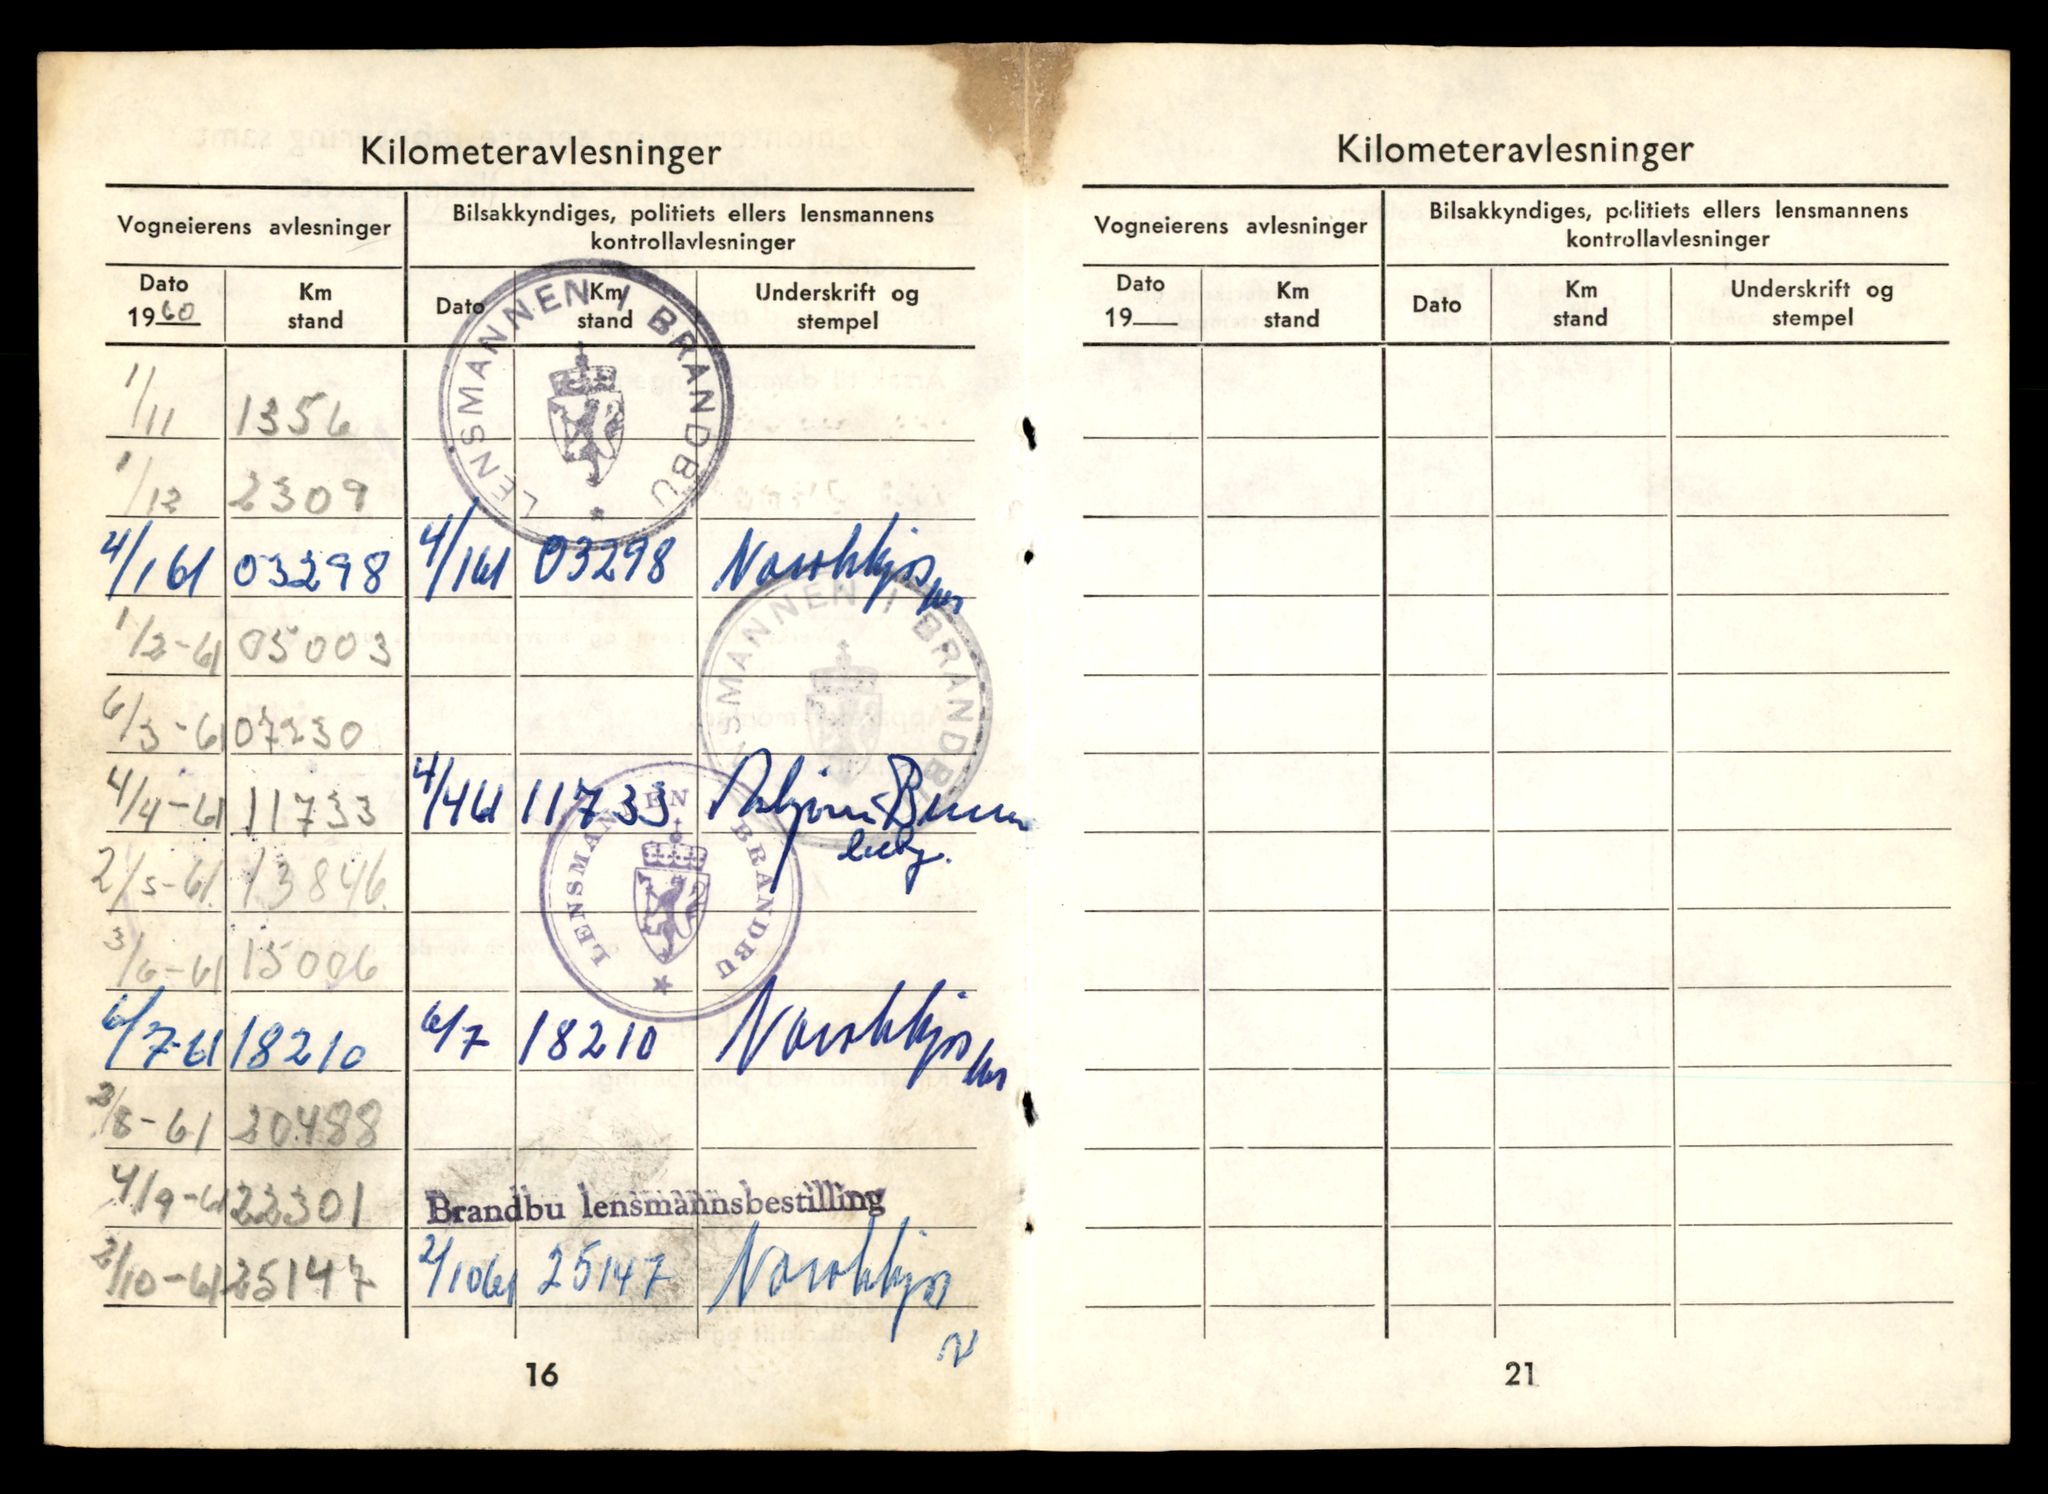 Kilometeravlesninger
Vogneierens avlesninger
Bilsakkyndiges, politiets ellers lensmannens
kontrollavlesninger
Dato
1960
Km
stand
Dato
Km
stand
Underskrift og
stempel
LENSMANNEN I BRANDBU
1/11 1356
1/12 2309
4/1 61 03298 4/1 61 03298
1/2-61 05003
LENSMANNEN I BRANDBU
6/3-61 07230
4/4-61 11733 4/4 61 11733
LENSMANNEN BRANDBU
2/5-61. 13846.
3/6-61 15006
6/7-61 18210 6/7 18210
2/8-61 20488
4/9-61 22301
Brandbu lensmannsbestilling
2/10-61 25147 2/10 61 25147
16
Kilometeravlesninger
Vogneierens avlesninger
Bilsakkyndiges, politiets ellers lensmannens
kontrollavlesninger
Dato
19
Km
stand
Dato
Km
stand
Underskrift og
stempel
21